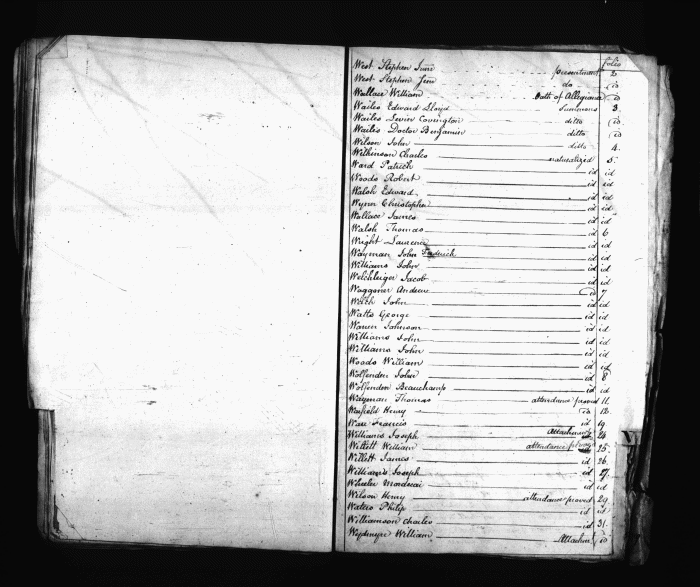 folio
West Stephen Junr presentment 2
West Stephen Junr do id
Wallace William Oath of Allegiance id
Wailes Edward Lloyd Summons 3.
Wailes Levin Covington ditto id
Wailes Doctor Benjamin ditto id
Wilson John ditto 4.
Wilkinson Charles naturalized 5.
Ward Patrick id id
Woods Robert id id
Walsh Edward id id
Wynn Christopher id id
Wallace James id id
Walsh Thomas id 6
Wright Laurence id id
Wayman John Fredrick id id
Williams John id id
Welchleiger Jacob id id
Waggoner Andrew id 7
Welch John id id
Watts George id id
Warren Johnson id id
Williams John id id
Williams John id id
Woods William id id
Wolfenden John id 8
Wolfendon Beauchamp id id
Wayman Thomas attendance proved 11.
Warfield Henry id 12.
Ware Francis id 19
Williams Joseph Attachment 24
Willett William attendance 25.
Willett James id 26.
Williams Joseph id 27.
Wheeler Mordecai id id
Wilson Henry attendance proved 29
Waters Philip id id
Williamson Charles id 31.
William Attachmt id